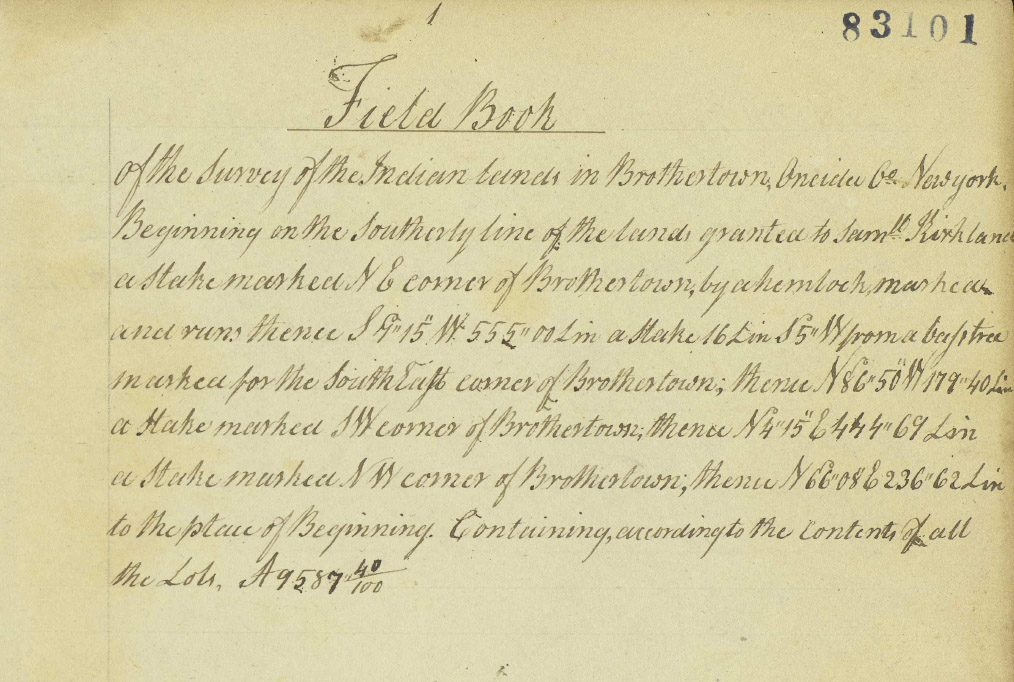 1
83101
Field Book
of the Survey of the Indian lands in Brothertown, Oneida Co. New york.
Beginning on the Southerly line of the lands granted to Samll. Kirkland
a Stake marked N E corner of Brothertown, by a hemlock, marked
and runs thence S 4"15" W 555"00 Lin a Stake 16 Lin S 5" W from a bass tree
marked for the South East corner of Brothertown; thence N 86"50" W 179"40 Lin
a Stake marked SW corner of Brothertown; thence N 4"15" E 444"69 Lin
a Stake marked N W corner of Brothertown; thence N 66"08 E 236"62 Lin
to the place of Beginning. Containing, according to the contents of all
the Lots, A 9587"40/100